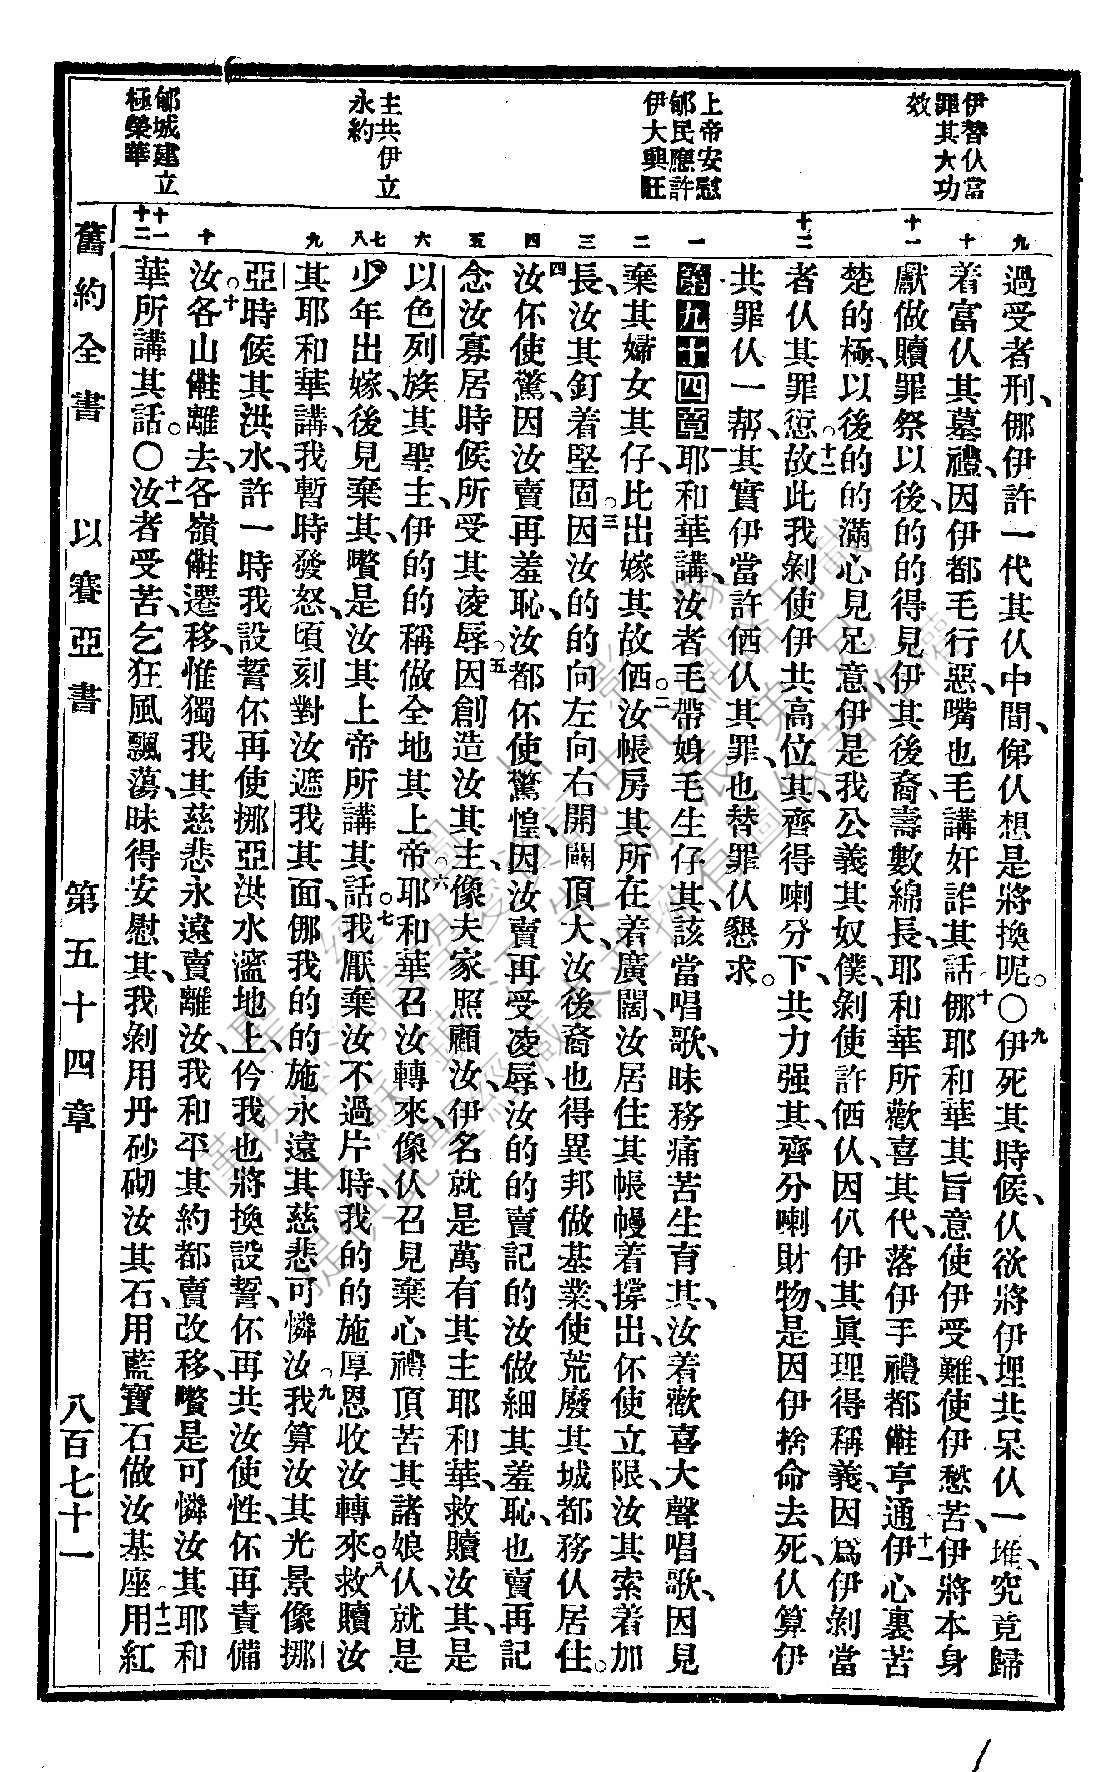 伊替仈當
罪其大功
效
上帝安慰
郇民應許
伊大興旺
主共伊立
永約
郇城建立
極榮華
九
十
十一
十二
一
二
三
四
五
六
七
八
九
十
十一
十二
過受者刑、倻伊許一代其仈中間、俤仈想是將換呢。〇九伊死其時候、仈欲將伊埋共呆仈一堆、究竟歸
着富仈其墓禮、因伊都毛行惡、嘴也毛講奸詐其話、十倻耶和華其旨意使伊受難、使伊愁苦、伊將本身
獻做贖罪祭、以後的的得見伊其後裔、壽數綿長、耶和華所歡喜其代、落伊手禮都𠆧亨通、十一伊心裏苦
楚的極、以後的的滿心見足意、伊是我公義其奴僕、剝使許価仈、因仈伊其眞理得稱義、因爲伊剝當
者仈其罪愆。十二故此我剝使伊共高位其、齊得喇分下、共力强其、齊分喇財物、是因伊捨命去死、仈算伊
共罪仈一帮、其實伊當許価仈其罪、也替罪仈懇求。
第五十四章一耶和華講、汝者毛帶娒毛生仔其、該當唱歌、昧務痛苦生育其、汝着歡喜大聲唱歌、因見
棄其婦女其仔、比出嫁其故価。二汝帳房其所在着廣闊、汝居住其帳幔着撐出、伓使立限、汝其索着加
長、汝其釘着堅固。三因汝的的向左向右開闢頂大、汝後裔也得異邦做基業、使荒廢其城都務仈居住。
四汝伓使驚、因汝賣再羞恥、汝都伓使驚惶、因汝賣再受凌辱、汝的的賣記的汝做細其羞恥、也賣再記
念汝寡居時候所受其凌辱。五因創造汝其主、像夫家照顧汝、伊名就是萬有其主耶和華、救贖汝其、是
以色列族其聖主、伊的的稱做全地其上帝。六耶和華召汝轉來、像仈召見棄心禮頂苦其諸娘仈、就是
少年出嫁、後見棄其、嘐是汝其上帝所講其話。七我厭棄汝不過片時、我的的施厚恩收汝轉來。八救贖汝
其耶和華講、我暫時發怒、頃刻對汝遮我其面、倻我的的施永遠其慈悲可憐汝。九我算汝其光景像挪
亞時候其洪水、許一時我設誓伓再使挪亞洪水濫地上、仱我也將換設誓、伓再共汝使性、伓再責備
汝。十各山𠆧離去、各嶺𠆧遷移、惟獨我其慈悲永遠賣離汝、我和平其約都賣改移、嘐是可憐汝其耶和
華所講其話。〇十一汝者受苦、乞狂風飄蕩、昧得安慰其、我剝用丹砂砌汝其石、用藍寶石做汝基座、十二用紅
舊約全書　以賽亞書　第五十四章　八百七十一